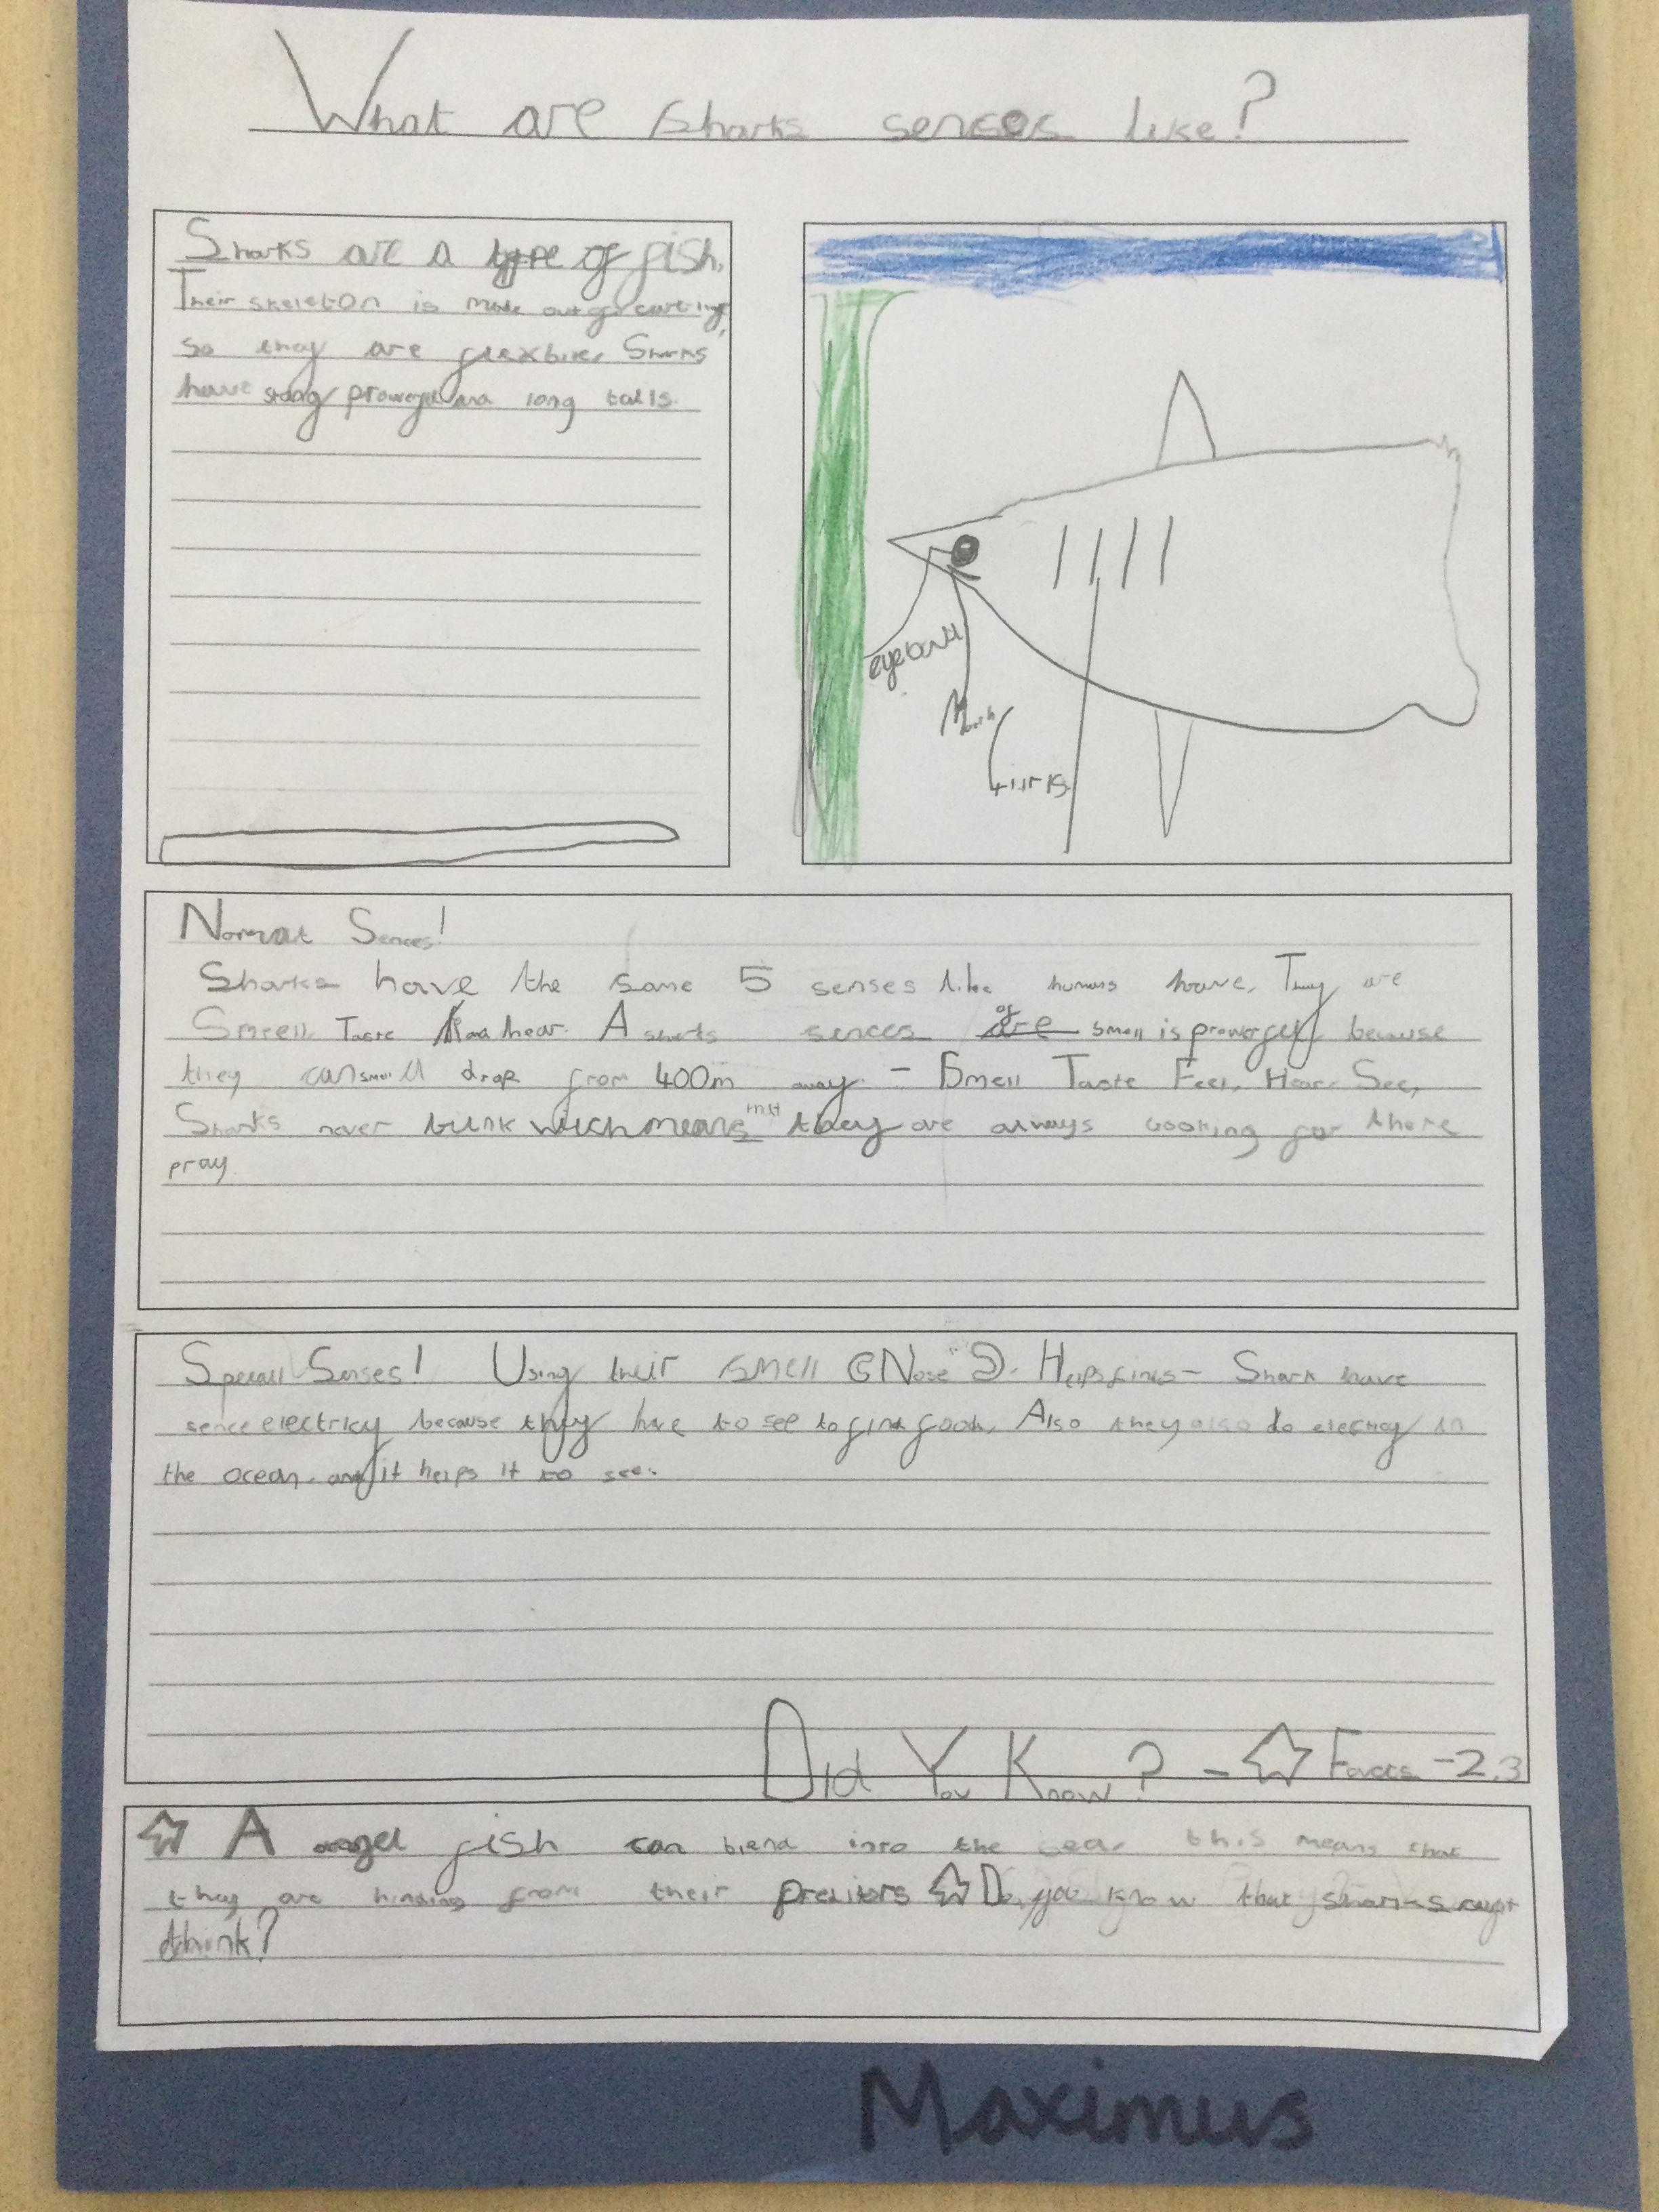 What are Sharks senses like?
Sharks are a type of fish.
Their skeleton is made out of
so they are Sharks
have strong and long tails.
eyeball
Mouth
Normal Sences!
Sharks have the same 5 senses like humans have. They are
Smell Taste hear. A sharks sences of are smell is because
they can smell drop from 400m away - Smell Taste Feel, Hear See,
Sharks never blink wich means that they are always looking for there
pray
Senses! Using their smell Nose Shark have
sence electricy because they have to see to find food. Also they also do in
the ocean. and it helps it to see.
Did You Know? - Facts - 2.3
A angel fish can blend into the sea, this means that
they are hinding from their preditors Do you know that sharks
think?
Maximus